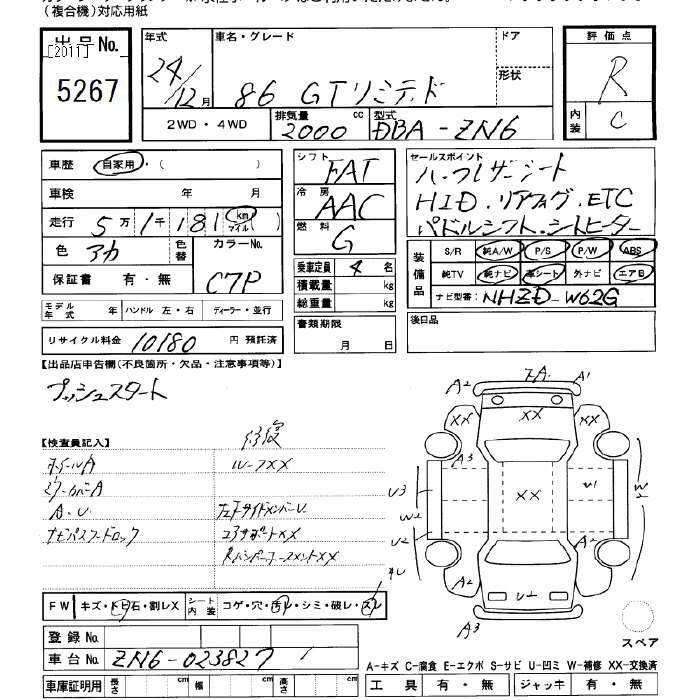 (複合機)対応用紙
出品No.
[2011]
5267
年式 車名・グレード ドア
24/12月 86 GTリミテッド 形状
2WD・4WD 排気量 2000 cc 型式 DBA-ZN6
評価点
R
内装 C
車歴 自家用・( )
車検 年 月
走行 5万1千181 km マイル ( )
色 アカ 色替 カラーNo. C7P
保証書 有・無
モデル年式 年 ハンドル 左・右 ディーラー・並行
リサイクル料金 10180 円 預託済
シフト FAT
冷房 AAC
燃料 G
乗車定員 4 名
積載量 kg
総重量 kg
書類期限
月 日
セールスポイント
ハーフレザーシート
HID.リアフォグ.ETC
パドルシフト.シートヒーター
装備品 S/R 純A/W P/S P/W ABS
純TV 純ナビ 革シート 外ナビ エアB
ナビ型番: NHZD-W62G
後日品
【出品店申告欄(不良箇所・欠品・注意事項等)】
プッシュスタート
【検査員記入】 修復
ホイールA ルーフXX
ミラーカバーA
A.U 左右サイドメンバーU
ナビパスワードロック コアサポートXX
Rバンパーホースメント XX
A2 A1
XX XX XX
A3
U3 XX W1 W2
W2
U2
A2 A2
4U
U2
A3
スペア
FW キズ・トビ石・割レX シート内装 コゲ・穴・汚レ・シミ・破レ・スレ
登録No.
車台No. ZN6-023827
車庫証明用 長さ cm 幅 cm 高さ cm
A-キズ C-腐食 E-エクボ S-サビ U-凹ミ W-補修 XX-交換済
工具 有・無 ジャッキ 有・無